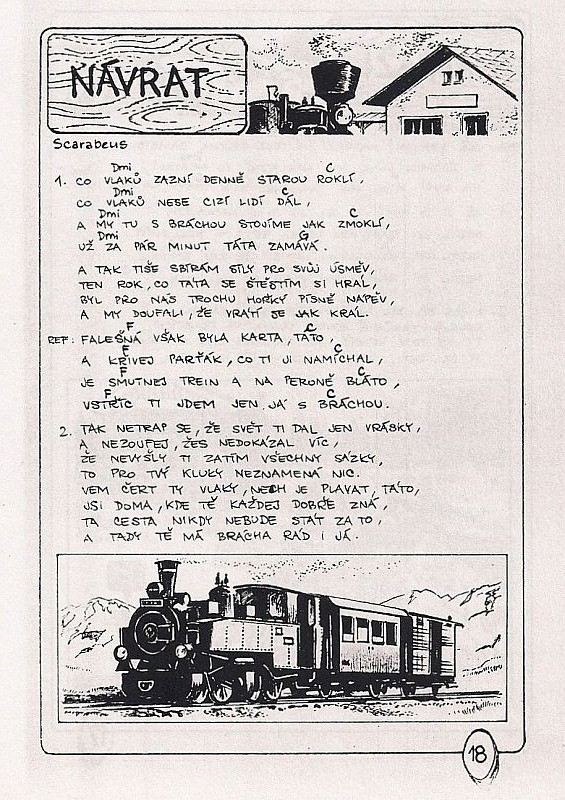 NÁVRAT
Scarabeus
Dmi C
1. CO VLAKŮ ZAZNÍ DENNĚ STAROU ROKLÍ,
Dmi C
CO VLAKŮ NESE CIZÍ LIDÍ DÁL,
Dmi C
A MY TU S BRÁCHOU STOJÍME JAK ZMOKLÍ,
Dmi G
UŽ ZA PÁR MINUT TÁTA ZAMÁVÁ.
A TAK TIŠE SBÍRÁM SÍLY PRO SVŮJ ÚSMĚV,
TEN ROK, CO TÁTA SE ŠTĚSTÍM SI HRÁL,
BYL PRO NÁS TROCHU HOŘKÝ PÍSNĚ NÁPĚV,
A MY DOUFALI, ŽE VRÁTÍ SE JAK KRÁL.
F C
REF: FALEŠNÁ VŠAK BYLA KARTA, TÁTO,
F C
A KŘIVEJ PARŤÁK, CO TI JI NAMÍCHAL,
F C
JE SMUTNEJ TREIN A NA PERONĚ BLÁTO,
F C
VSTŘÍC TI JDEM JEN JÁ S BRÁCHOU.
2. TAK NETRAP SE, ŽE SVĚT TI DAL JEN VRÁSKY,
A NEZOUFEJ, ŽES NEDOKÁZAL VÍC,
ŽE NEVYŠLY TI ZATÍM VŠECHNY SÁZKY,
TO PRO TVÝ KLUKY NEZNAMENÁ NIC.
VEM ČERT TY VLAKY, NECH JE PLAVAT, TÁTO,
JSI DOMA, KDE TĚ KAŽDEJ DOBŘE ZNÁ,
TA CESTA NIKDY NEBUDE STÁT ZA TO,
A TADY TĚ MÁ BRÁCHA RÁD I JÁ.
18